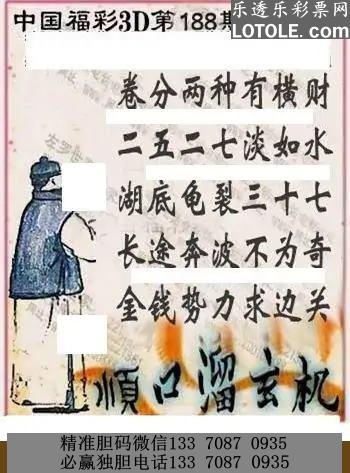 中国福彩3D第188期
乐透乐彩票网
LOTOLE.COM
卷分两种有横财
二五二七淡如水
湖底龟裂三十七
长途奔波不为奇
金钱势力求边关
顺口溜玄机
精准胆码微信133 7087 0935
必赢独胆电话133 7087 0935